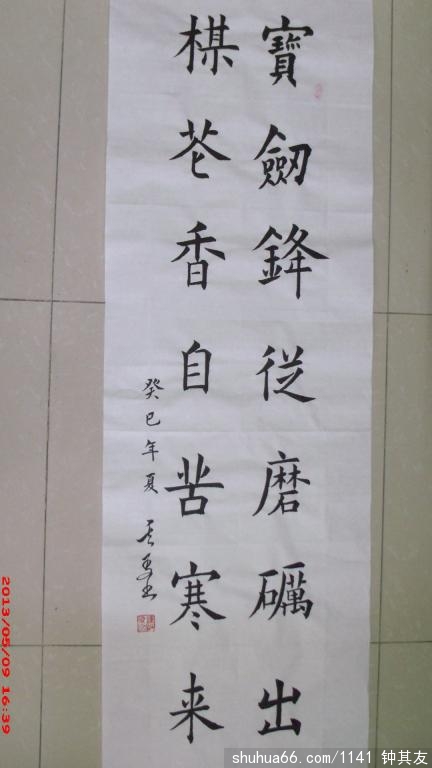 寶劒鋒從磨礪出
楳苍香自苦寒来
癸巳年夏
2013/05/09 16:39
shuhua66.com/1141 钟其友